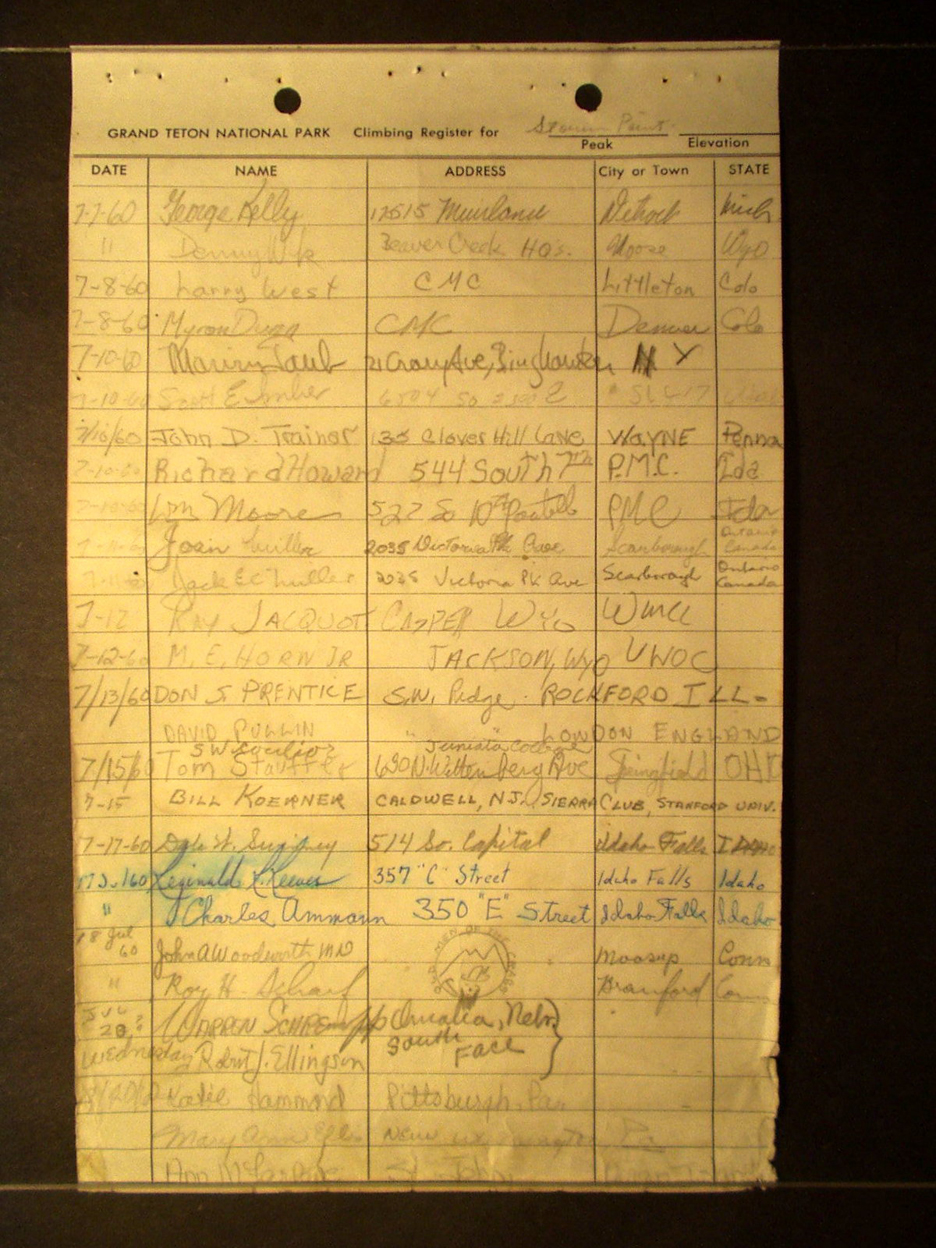 GRAND TETON NATIONAL PARK Climbing Register for Storm Point
Peak Elevation
DATE NAME ADDRESS City or Town STATE
7-7-60 George Kelly 12515 Muirland Detroit Mich
" Denny Beaver Creek HQs. Moose Wyo
7-8-60 Larry West CMC Littleton Colo
7-8-60 Myron CMC Denver Colo
7-10-60 21 Crary Ave, Binghamton N Y
7-10-60 Scott E. 6504 So SLC 17
7/10/60 John D. Trainor 135 Clover Hill Lane WAYNE Penna
7-10-60 Richard Howard 544 South 7th P.M.C. Ida
7-10-60 Wm Moore 527 So 10th PMC Ida
Joan Miller 2035 Victoria Pk Ave Scarborough Ontario Canada
Jack E C Miller 2035 Victoria Pk Ave Scarborough Ontario Canada
7-12 RAY JACQUOT CASPER WYO WMCC
7-12-60 M. E. HORN JR JACKSON, WYO UWOC
7/13/60 DON S PRENTICE S.W. Ridge. ROCKFORD ILL-
DAVID PULLIN " LONDON ENGLAND
SW Juniata College
7/15/60 Tom Stauffer 630 N. Wittenberg Ave Springfield OHI
7-15 BILL KOERNER CALDWELL, N.J. SIERRA CLUB, STANFORD UNIV.
7-17-60 514 So. Capital Idaho Falls IDAHO
Reginald R. Reeves 357 "C" Street Idaho Falls Idaho
" Charles Ammann 350 "E" Street Idaho Falls Idaho
18 Jul 60 John A Woodworth MD Moosup Conn
" Roy H. Scharf Branford Conn
JUL 20? WARREN Omaha, Nebr.
South FACE
Wednesday Robert J. Ellingson
Katie Hammond Pittsburgh, Pa.
Mary Ann New Pa
Ann St. John